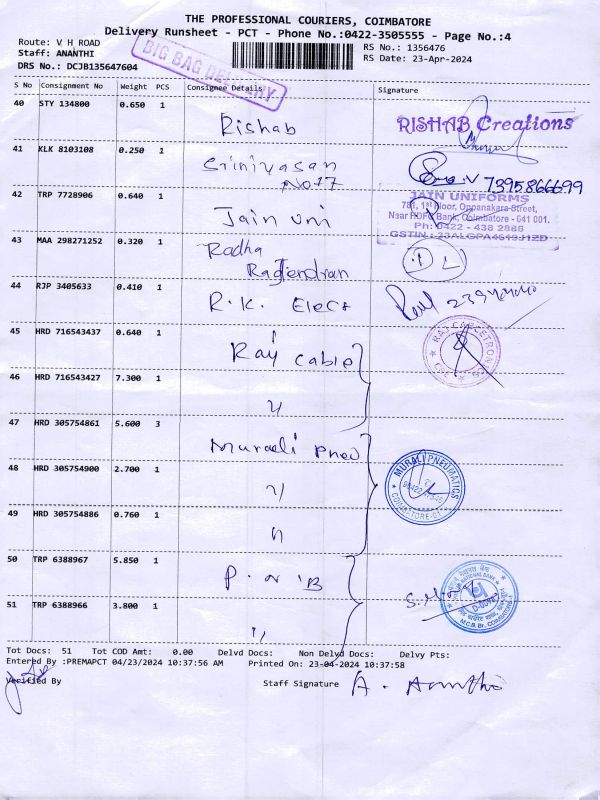 THE PROFESSIONAL COURIERS, COIMBATORE
Delivery Runsheet - PCT - Phone No.:0422-3505555 - Page No.:4
Route: V H ROAD
RS No.: 1356476
Staff: ANANTHI
RS Date: 23-Apr-2024
DRS No.: DCJB135647604
BIG BAG DELIVERY
S No Consignment No Weight PCS Consignee Details Signature
40 STY 134800 0.650 1 Rishab
RISHAB Creations
41 KLK 8103108 0.250 1 Srinivasan
No 17
7395866699
42 TRP 7728906 0.640 1 Jain uni
JAIN UNIFORMS
781, 1st Floor, Oppanakara Street,
Near HDFC Bank, Coimbatore - 641 001.
Ph: 0422 - 438 2886
43 MAA 298271252 0.320 1 Radha
Rajendran
44 RJP 3405633 0.410 1 R.K. Elect
45 HRD 716543437 0.640 1 Raj Cable
46 HRD 716543427 7.300 1 "
47 HRD 305754861 5.600 3 Murali Pneu
MURALI PNEUMATICS
48 HRD 305754900 2.700 1 "
49 HRD 305754886 0.760 1 "
50 TRP 6388967 5.850 1 P.N.B
51 TRP 6388966 3.800 1 "
Tot Docs: 51 Tot COD Amt: 0.00 Delvd Docs: Non Delvd Docs: Delvy Pts:
Entered By :PREMAPCT 04/23/2024 10:37:56 AM Printed On: 23-04-2024 10:37:58
Verified By
Staff Signature A. Ananthi